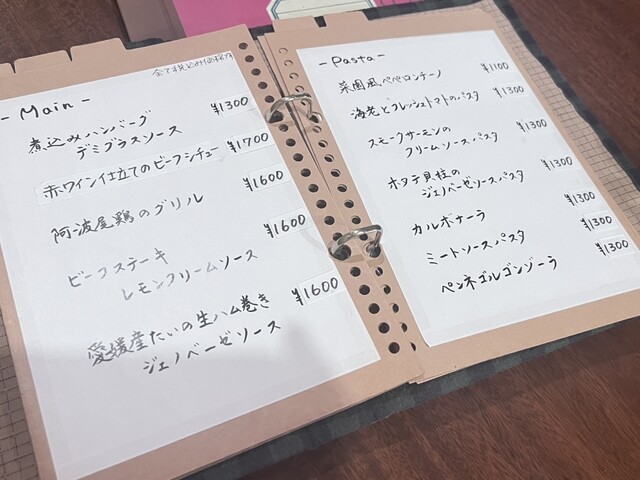 - Main -
全て税込み価格です
煮込みハンバーグ
デミグラスソース
¥1300
赤ワイン仕立てのビーフシチュー ¥1700
阿波尾鶏のグリル ¥1600
ビーフステーキ
レモンクリームソース
¥1600
愛媛産たいの生ハム巻き
ジェノベーゼソース
¥1600
- Pasta -
菜園風ペペロンチーノ ¥1100
海老とフレッシュトマトのパスタ ¥1300
スモークサーモンの
クリームソースパスタ
¥1300
ホタテ貝柱の
ジェノベーゼソースパスタ
¥1300
カルボナーラ ¥1300
ミートソースパスタ ¥1300
ペンネゴルゴンゾーラ ¥1300